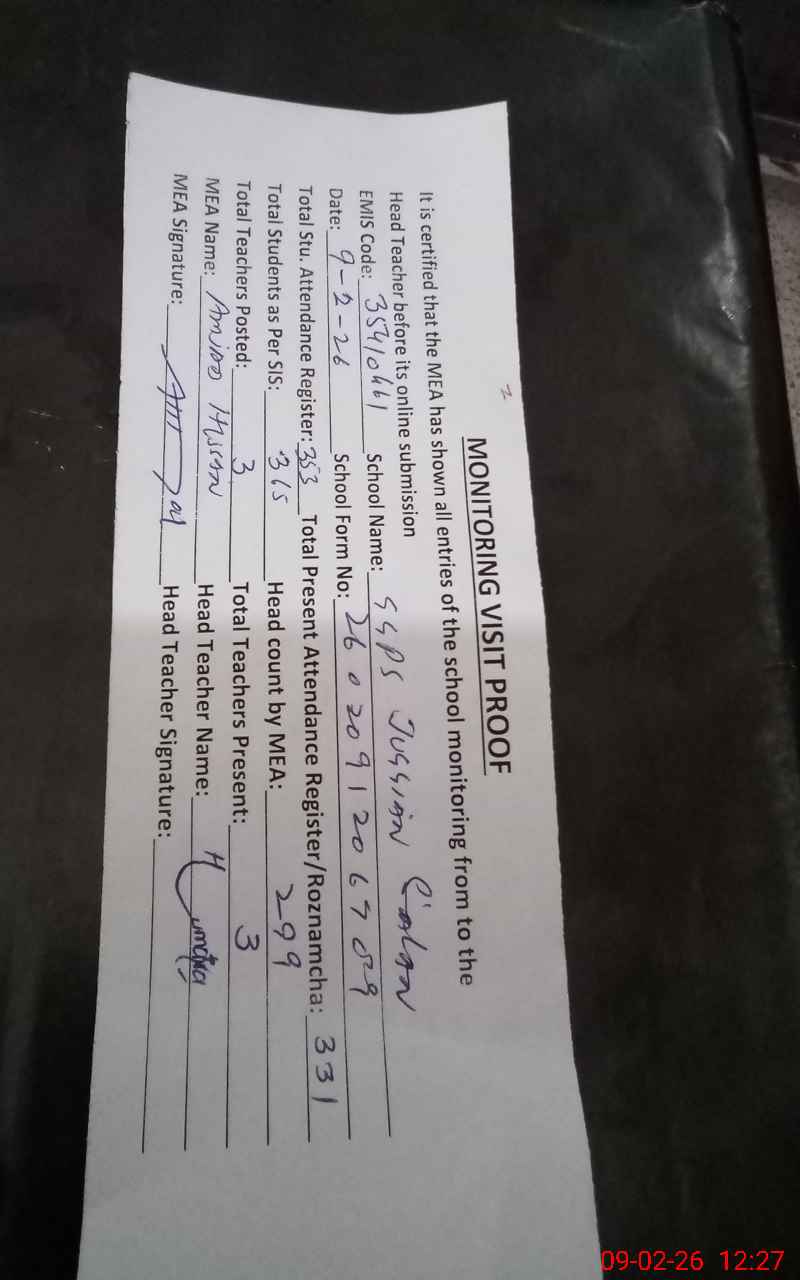 MONITORING VISIT PROOF
It is certified that the MEA has shown all entries of the school monitoring from to the
Head Teacher before its online submission
EMIS Code: 35410461 School Name: GGPS Jussian Calan
Date: 9-2-26 School Form No: 26020912067029
Total Stu. Attendance Register: 353 Total Present Attendance Register/Roznamcha: 331
Total Students as Per SIS: 365 Head count by MEA: 299
Total Teachers Posted: 3 Total Teachers Present: 3
MEA Name: Amjad Hussan Head Teacher Name: Humaira
MEA Signature: Head Teacher Signature:
09-02-26 12:27